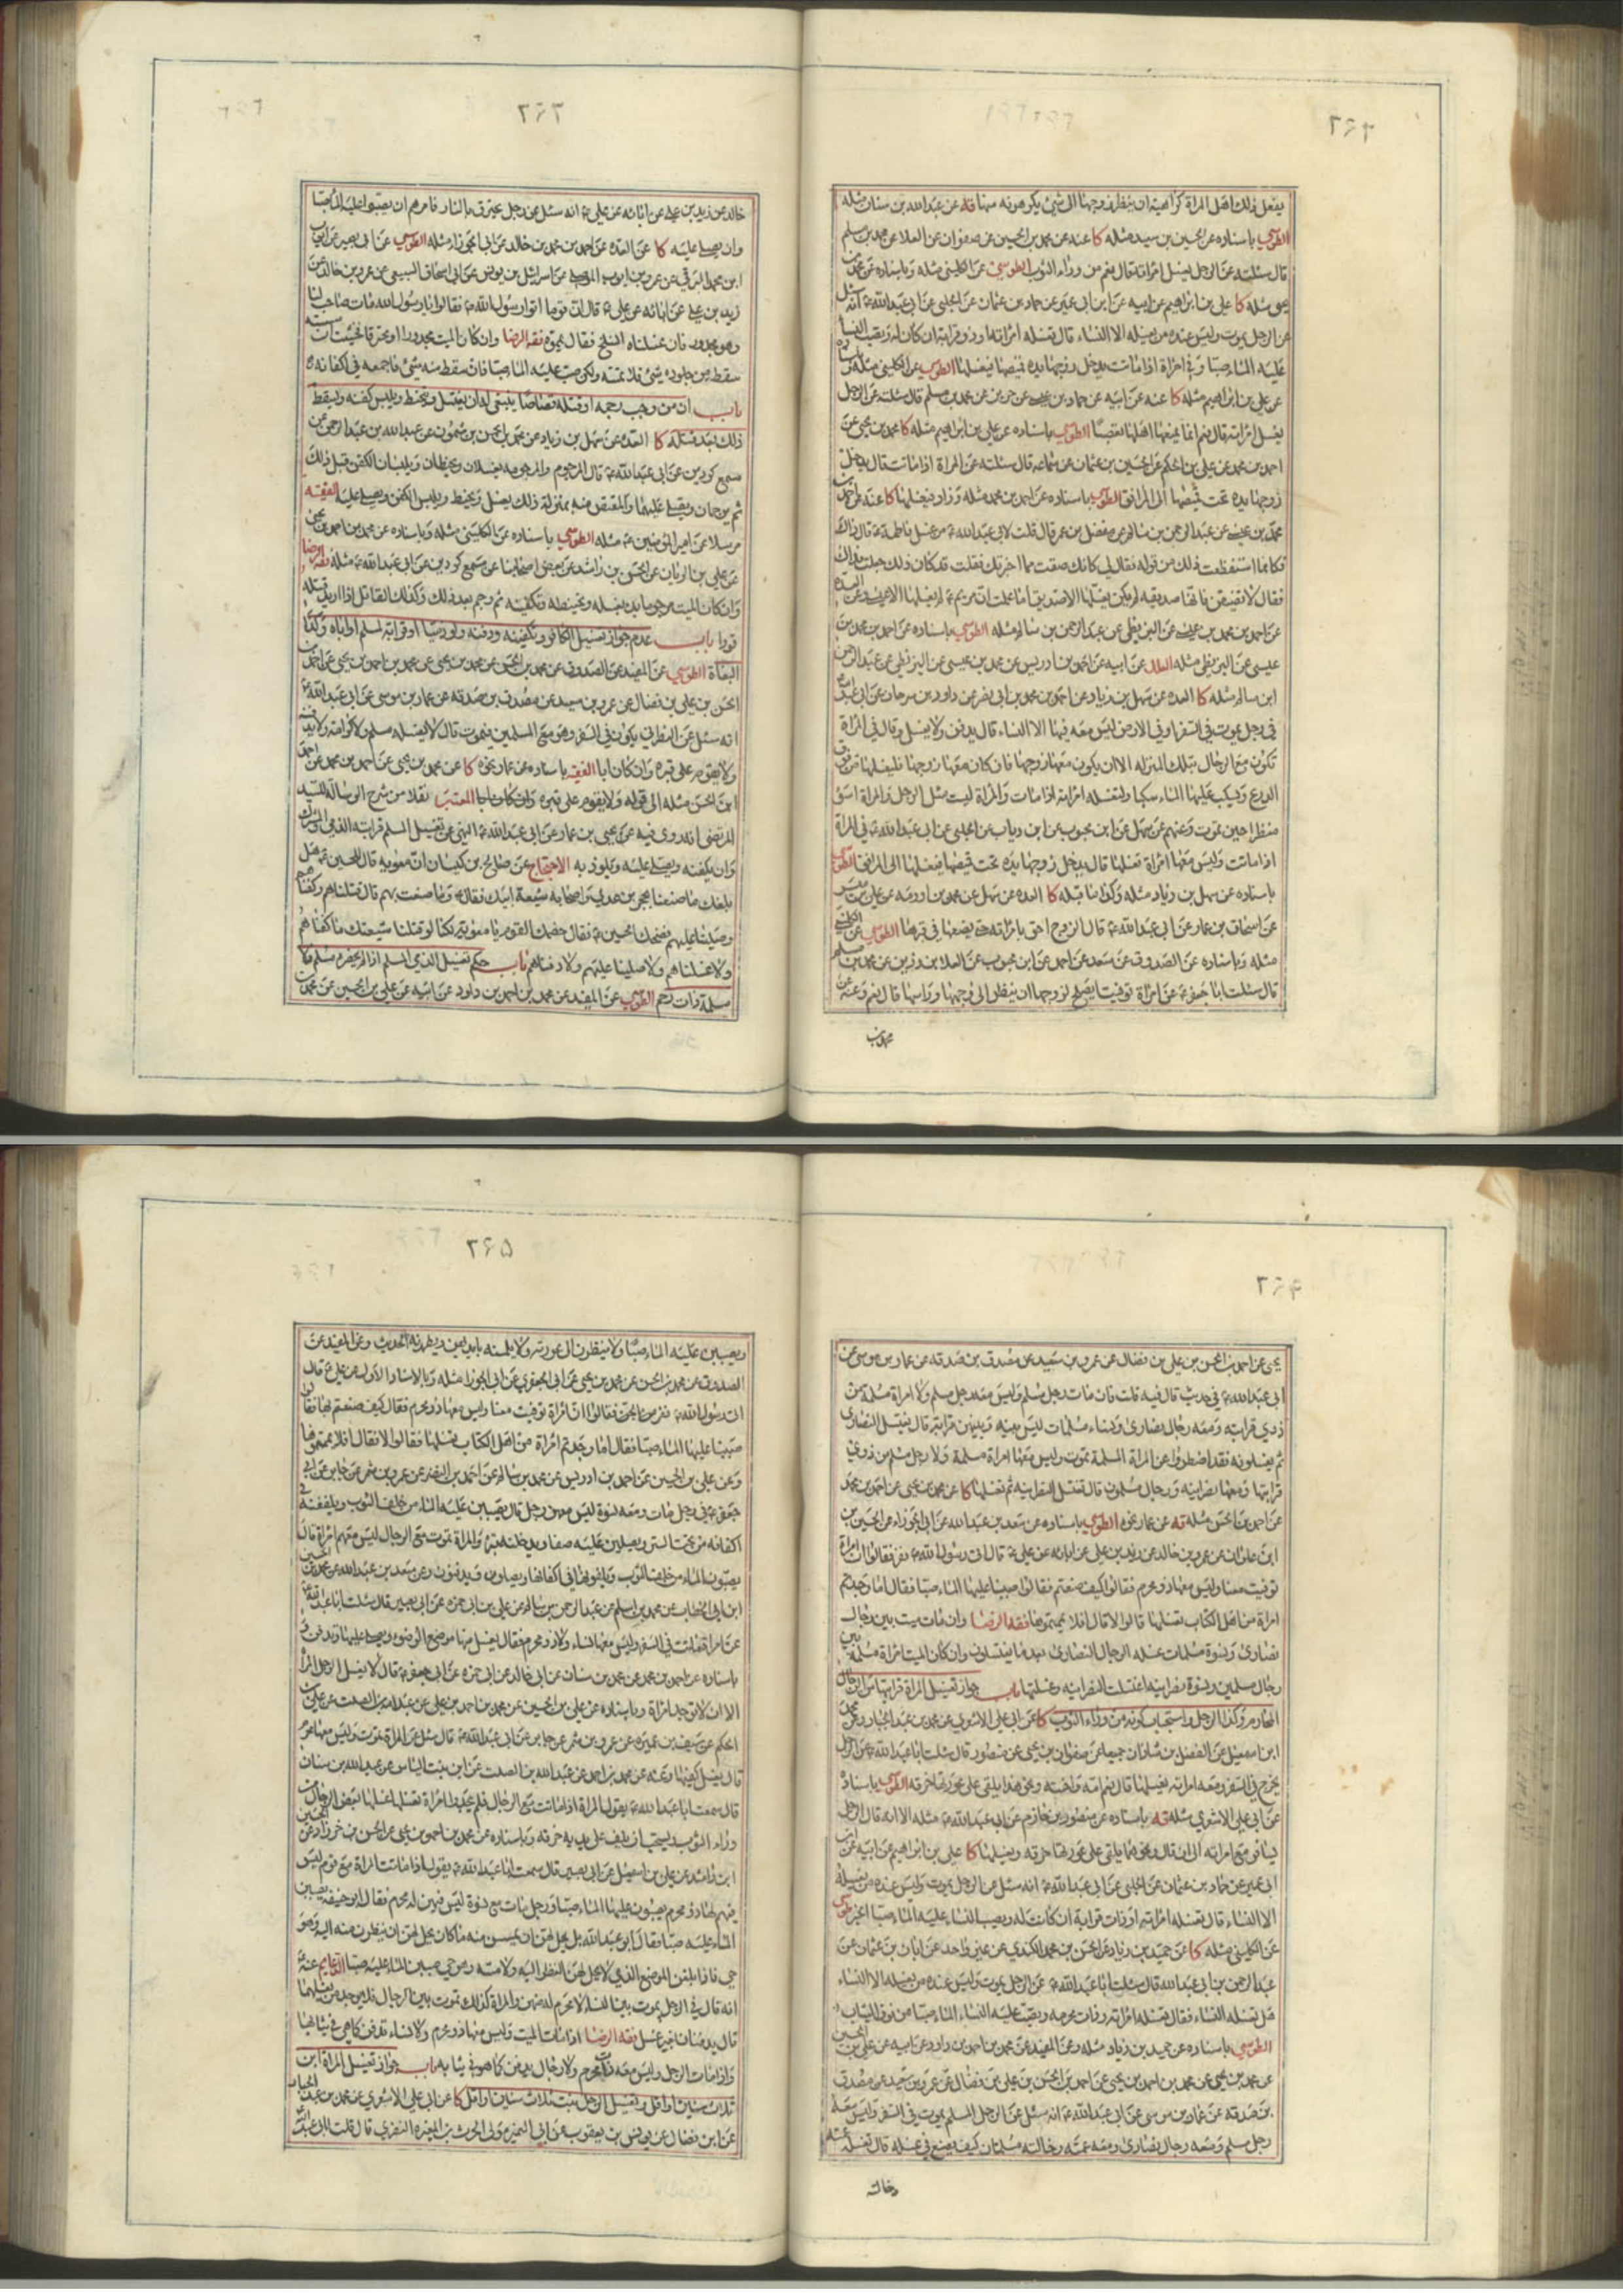 ٢٦٢
يفعل ذلك اهل المراة كراهية ان ينظر زوجها الى شئ يكرهونه منها قه عن عبدالله بن سنان مثله
الطوسي باسناده عن الحسين بن سعيد مثله كا عنه عن محمد بن الحسين عن صفوان عن العلا عن محمد بن مسلم
قال سئلته عن الرجل يغسل امراته قال نعم من وراء الثوب الطوسي عن الكليني مثله وباسناده عن محمد بن
يحيى مثله كا علي بن ابراهيم عن ابيه عن ابن ابي عمير عن حماد بن عثمان عن الحلبي عن ابي عبدالله ع انه سئل
عن الرجل يموت وليس عنده من يغسله الا النساء قال تغسله امراته او ذو قرابة ان كان له ويصب النساء
عليه الماء صبا وفي المراة اذا ماتت يدخل زوجها يده قميصها فيغسلها الطوسي عن الكليني مثله
عن علي بن ابراهيم مثله كا عنه عن ابيه عن حماد بن عيسى عن حريز عن محمد بن مسلم قال سئلته عن الرجل
يغسل امراته قال نعم انما يمنعها اهلها تعصبا الطوسي باسناده عن علي بن ابراهيم مثله كا محمد بن يحيى عن
احمد بن محمد عن علي بن الحكم عن الحسين بن عثمان عن سماعه قال سئلته عن المراة اذا ماتت قال يدخل
زوجها يده تحت قميصها الى المرافق الطوسي باسناده عن احمد بن محمد مثله وزاد فيغسلها كا عنه عن احمد بن
محمد بن عيسى عن عبد الرحمن بن سالم عن مفضل بن عمر قال قلت لابي عبدالله ع من غسل فاطمة ع قال ذاك
فكانما استفظعت ذلك من قوله فقال لي كانك ضقت مما اخبرتك فقلت قد كان ذلك جعلت فداك
فقال لا تضيقن فانها صديقه لم يكن يغسلها الا صديق اما علمت ان مريم ع لم يغسلها الا عيسى وعن العدة
عن احمد بن محمد بن عيسى عن البزنطي عن عبد الرحمن بن سالم مثله الطوسي باسناده عن احمد بن محمد بن
عيسى عن البزنطي مثله العلل عن ابيه عن احمد بن ادريس عن محمد بن عيسى عن البزنطي عن عبد الرحمن
ابن سالم مثله كا العدة عن سهل بن زياد عن احمد بن محمد بن ابي نصر عن داود بن سرحان عن ابي عبدالله ع
في رجل يموت في السفر او في الارض ليس معه فيها الا النساء قال يدفن ولا يغسل وقال في المراة
تكون مع الرجال بتلك المنزله الا ان يكون معها زوجها فان كان معها زوجها فليغسلها من فوق
الدرع ويسكب عليها الماء سكبا ولتغسله امراته اذا مات والمراة ليست مثل الرجل المراة اسوء
منظرا حين تموت وعنهم عن سهل عن ابن محبوب عن ابن رياب عن الحلبي عن ابي عبدالله ع في المراة
اذا ماتت وليس معها امراة تغسلها قال يدخل زوجها يده تحت قميصها فيغسلها الى المرافق الطوسي
باسناده عن سهل بن زياد مثله وكذا ما قبله كا العدة عن سهل عن محمد بن اورمه عن علي بن ميسر
عن اسحاق بن عمار عن ابي عبدالله ع قال الزوج احق بامراته حتى يضعها في قبرها الطوسي عن الكليني
مثله وباسناده عن الصدوق عن سعد عن احمد عن ابن محبوب عن العلا بن رزين عن محمد بن مسلم
قال سئلت ابا جعفر ع عن امراة توفيت ايصلح لزوجها ان ينظر الى وجهها وراسها قال نعم وعنه عن
٢٦٣
خالد عن زيد بن علي عن ابائه عن علي ع انه سئل عن رجل يحترق بالنار فامرهم ان يصبوا عليه الماء صبا
وان يصلى عليه كا عن العدة عن احمد بن محمد بن خالد عن ابي الجوزاء مثله الطوسي
ابن محمد الدرقي عن عمرو بن ايوب الموصلي عن اسرائيل بن يونس عن ابي اسحاق السبيعي عن عمرو بن خالد عن
زيد بن علي عن ابائه عن علي ع قال ان قوما اتوا رسول الله ص فقالوا يا رسول الله مات صاحب لنا
وهو مجدور فان غسلناه انسلخ فقال يمموه فقه الرضا وان كان الميت مجدورا او محترقا فخشيت ان مسسته
سقط من جلوده شئ فلا تمسه ولكن صب عليه الماء صبا فان سقط منه شئ فاجمعه في اكفانه
باب ان من وجب رجمه او قتله قصاصا ينبغي له ان يغتسل ويتحنط ويلبس كفنه ويسقط
ذلك بعد قتله كا العدة عن سهل بن زياد عن محمد بن الحسن بن شمون عن عبدالله بن عبد الرحمن عن
مسمع كردين عن ابي عبدالله ع قال المرجوم والمرجومه يغسلان ويحنطان ويلبسان الكفن قبل ذلك
ثم يرجمان ويصلى عليهما والمقتص منه بمنزلة ذلك يغسل ويحنط ويلبس الكفن ويصلى عليه الفقيه
مرسلا عن امير المومنين ع مثله الطوسي باسناده عن الكليني مثله وباسناده عن محمد بن احمد بن يحيى
عن علي بن الريان عن الحسن بن راشد عن بعض اصحابنا عن مسمع كردين عن ابي عبدالله ع مثله فقه الرضا
وان كان الميت مرجوما بدء بغسله وتحنيطه وتكفينه ثم رجم بعد ذلك وكذلك القاتل اذا اريد قتله
قودا باب عدم جواز تغسيل الكافر وتكفينه ودفنه ولو ذميا او قرابة لمسلم او اباه وكذا
البغاة الطوسي عن المفيد عن الصدوق عن محمد بن الحسن عن محمد بن يحيى عن محمد بن احمد بن يحيى عن احمد بن
الحسن بن علي بن فضال عن عمرو بن سعيد عن مصدق بن صدقه عن عمار بن موسى عن ابي عبدالله ع
انه سئل عن النصراني يكون في السفر وهو مع المسلمين فيموت قال لا يغسله مسلم ولا كرامة ولا يدفنه
ولا يقوم على قبره وان كان اباه الفقيه باسناده عن عمار نحوه كا عن محمد بن يحيى عن احمد بن محمد عن احمد
ابن الحسن مثله الى قوله ولا يقوم على قبره وان كان اباه المعتبر نقلا من شرح الرسالة للسيد
المرتضى انه روى فيه عن يحيى بن عمار عن ابي عبدالله ع النهي عن تغسيل المسلم قرابته الذمي والمشرك
وان يكفنه ويصلي عليه ويلوذ به الاحتجاج عن صالح بن كيسان ان معويه قال للحسين ع هل
بلغك ما صنعنا بحجر بن عدي واصحابه شيعة ابيك فقال ع وما صنعت بهم قال قتلناهم وكفناهم
وصلينا عليهم فضحك الحسين ع فقال خصمك القوم يا معويه لكنا لو قتلنا شيعتك ما كفناهم
ولا غسلناهم ولا صلينا عليهم ولا دفناهم باب حكم تغسيل الذمي المسلم اذا لم يحضره مسلم ولا
مسلمة ذات رحم الطوسي عن المفيد عن محمد بن احمد بن داود عن ابيه عن علي بن الحسين عن محمد بن
٢٦٤
يحيى عن احمد بن الحسن بن علي بن فضال عن عمرو بن سعيد عن مصدق بن صدقه عن عمار بن موسى عن
ابي عبدالله ع في حديث قال فيه قلت فان مات رجل مسلم وليس معه رجل مسلم ولا امراة مسلمة من
ذوي قرابته ومعه رجال نصارى ونساء مسلمات ليس بينه وبينهن قرابة قال يغتسل النصارى
ثم يغسلونه فقد اضطروا عن المراة المسلمة تموت وليس معها امراة مسلمة ولا رجل مسلم من ذوي
قرابتها ومعها نصرانيه ورجال مسلمون قال تغتسل النصرانيه ثم تغسلها كا عن محمد بن يحيى عن احمد بن محمد
عن احمد بن الحسن مثله قه عن عمار نحوه الطوسي باسناده عن سعد بن عبدالله عن ابي الجوزاء عن الحسين بن
ابن علوان عن عمرو بن خالد عن زيد بن علي عن ابائه عن علي ع قال اتى رسول الله ص نفر فقالوا ان امراة
توفيت معنا وليس معها ذو محرم فقالوا كيف صنعتم فقالوا صببنا عليها الماء صبا فقال اما وجدتم
امراة من اهل الكتاب تغسلها قالوا لا قال افلا يممتموها فقه الرضا وان مات ميت بين رجال
نصارى ونسوة مسلمات غسله الرجال النصارى بعد ما يغتسلون وان كان الميت امراة مسلمة بين
رجال مسلمين ونسوة نصرانية اغتسلت النصرانيه وغسلتها باب جواز تغسيل المراة قرابتها من الرجال
المحارم وكذا الرجل واستحباب كونه من وراء الثوب كا عن ابي علي الاشعري عن محمد بن عبد الجبار وعن محمد
ابن اسمعيل عن الفضل بن شاذان جميعا عن صفوان بن يحيى عن منصور قال سئلت ابا عبدالله ع عن الرجل
يخرج في السفر ومعه امراته يغسلها قال نعم وامه واخته ونحو هذا يلقي على عورتها خرقه الطوسي باسناده
عن ابي علي الاشعري مثله قه باسناده عن منصور بن حازم عن ابي عبدالله ع مثله الا انه قال الرجل
يسافر مع امراته الى ان قال ونحوهما يلقى على عورتها خرقه ويغسلها كا علي بن ابراهيم عن ابيه عن ابن
ابي عمير عن حماد بن عثمان عن الحلبي عن ابي عبدالله ع انه سئل عن الرجل يموت وليس عنده من يغسله
الا النساء قال تغسله امراته او ذات قرابة ان كانت له ويصب النساء عليه الماء صبا الخبر الطوسي
عن الكليني مثله كا عن حميد بن زياد عن الحسن بن محمد الكندي عن غير واحد عن ابان بن عثمان عن
عبد الرحمن بن ابي عبدالله قال سئلت ابا عبدالله ع عن الرجل يموت وليس عنده من يغسله الا النساء
هل تغسله النساء فقال تغسله امراته وذات محرمه ويصب عليه النساء الماء صبا من فوق الثياب
الطوسي باسناده عن حميد بن زياد مثله وعن المفيد عن محمد بن احمد بن داود عن ابيه عن علي بن الحسين
عن محمد بن يحيى عن محمد بن احمد بن يحيى عن احمد بن الحسن بن علي بن فضال عن عمرو بن سعيد عن مصدق
بن صدقه عن عمار بن موسى عن ابي عبدالله ع انه سئل عن الرجل المسلم يموت في السفر وليس معه
رجل مسلم ومعه رجال نصارى ومعه عمته وخالته مسلمتان كيف يصنع في غسله قال تغسله عمته
وخالته
٢٦٥
ويصببن عليه الماء صبا ولا ينظرن الى عورته ولا يلمسنه بايديهن ويطهرنه الحديث وعن المفيد عن
الصدوق عن محمد بن الحسن عن محمد بن يحيى عن ابي الجوزا مثله وبالاسناد الاول عن علي ع قال
اتى رسول الله ص نفر فقالوا ان امراة توفيت معنا وليس معها ذو محرم فقال كيف صنعتم بها فقالوا
صببنا عليها الماء صبا فقال اما وجدتم امراة من اهل الكتاب تغسلها فقالوا لا فقال افلا يممتموها
وعن علي بن الحسين عن احمد بن ادريس عن محمد بن سالم عن احمد بن النضر عن عمرو بن شمر عن جابر عن ابي
جعفر ع في رجل مات ومعه نسوة ليس معهن رجل قال يصببن عليه الماء من خلف الثوب ويلففنه في
اكفانه من تحت الستر ويصلين عليه صفا ويدخلنه قبره والمراة تموت مع الرجال ليس معهم امراة قال
يصبون الماء من خلف الثوب ويلفونها في اكفانها ويصلون ويدفنون وعن سعد بن عبدالله عن محمد بن الحسين
ابن ابي الخطاب عن محمد بن اسلم عن عبد الرحمن بن سالم عن علي بن ابي حمزه عن ابي بصير قال سئلت ابا عبدالله ع
عن امراة ماتت في السفر وليس معها نساء ولا ذو محرم فقال يغسل منها موضع الوضوء ويصلى عليها وتدفن و
باسناده عن احمد بن محمد عن محمد بن سنان عن ابي خالد عن ابي حمزه عن ابي جعفر ع قال لا يغسل الرجل المراة
الا ان لا توجد امراة وباسناده عن علي بن الحسين عن محمد بن احمد بن علي عن عبدالله بن الصلت عن علي بن
الحكم عن سيف بن عميره عن عمرو بن شمر عن جابر عن ابي عبدالله ع قال سئل عن المراة تموت وليس معها محرم
قال يغسل كفيها وعنه عن محمد بن احمد عن عبدالله بن الصلت عن ابن بنت الياس عن عبدالله بن سنان
قال سمعت ابا عبدالله ع يقول المراة اذا ماتت مع الرجال فلم يجدوا امراة تغسلها غسلها بعض الرجال من
وراء الثوب ويستحب ان يلف على يديه خرقه وباسناده عن محمد بن احمد بن يحيى عن الحسن بن خرزاد عن الحسين
ابن راشد عن علي بن اسمعيل عن ابي بصير قال سمعت ابا عبدالله ع يقول اذا ماتت المراة مع قوم ليس
فيهم لها ذو محرم يصبون عليها الماء صبا ورجل مات مع نسوة ليس فيهن له محرم فقال ابو حنيفه يصببن
الماء عليه صبا فقال ابو عبدالله بل يحل لهن ان يمسسن منه ما كان يحل لهن ان ينظرن منه اليه وهو
حي فاذا بلغن الموضع الذي لا يحل لهن النظر اليه ولا مسه وهو حي صببن الماء عليه صبا الدعايم عنه ع
انه قال في الرجل يموت بين النساء لا محرم له منهن والمراة كذلك تموت بين الرجال فلا يوجد من يغسلها
قال يدفنان بغير غسل فقه الرضا اذا ماتت الميت وليس منها ذو محرم ولا نساء تدفن كما هي في ثيابها
واذا مات الرجل وليس معه ذات محرم ولا رجال يدفن كما هو في ثيابه باب جواز تغسيل المراة ابن
ثلاث سنين او اقل وتغسيل الرجل بنت ثلاث سنين او اقل كا عن ابي علي الاشعري عن محمد بن عبد الجبار
عن ابن فضال عن يونس بن يعقوب عن ابي النمير مولى الحرث بن المغيره النصري قال قلت لابي عبدالله